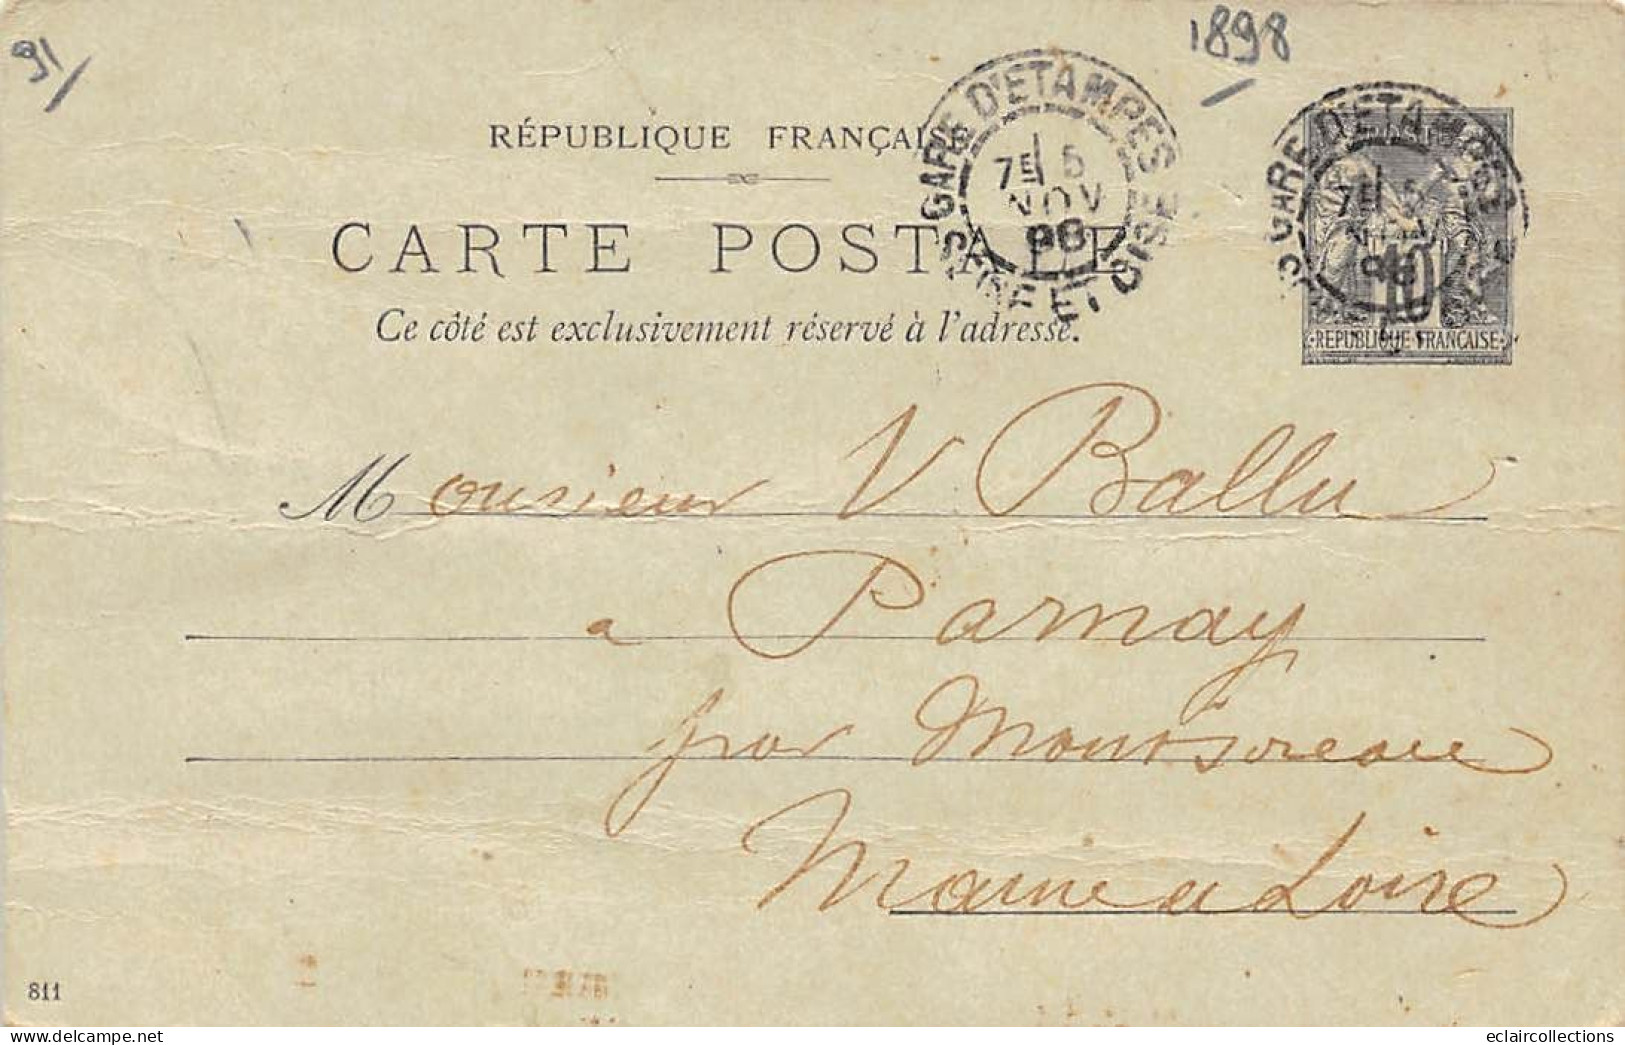 91/
1898
RÉPUBLIQUE FRANÇAISE
CARTE POSTALE
Ce côté est exclusivement réservé à l'adresse.
GARE D'ETAMPES
7E 5
NOV
98
SEINE ET OISE
GARE D'ETAMPES
7E 5
98
10
REPUBLIQUE FRANÇAISE
Monsieur V Ballu
a Parnay
par Montsoreau
Maine a Loire
811
eclaircollections